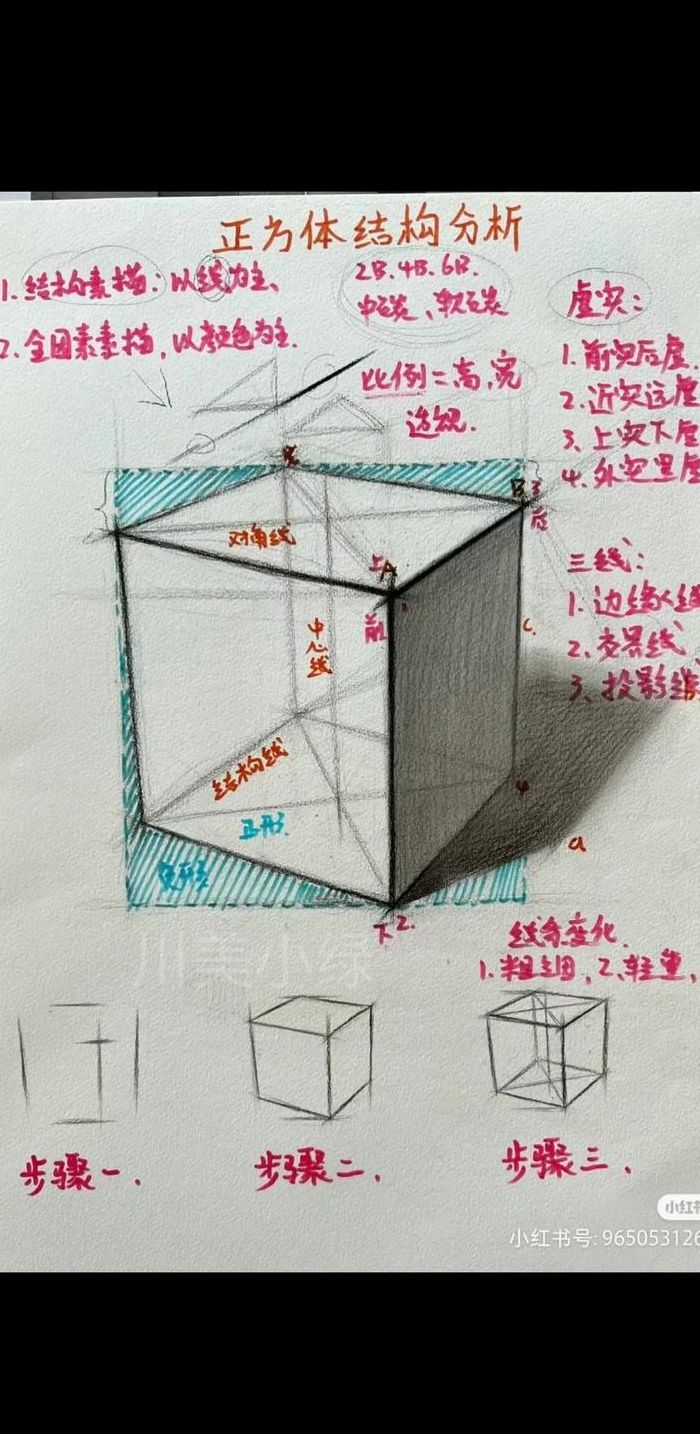 正方体结构分析
1.结构素描：以线为主、
2.全因素素描，以颜色为主.
2B.4B.6B.
中石炭、软石炭
比例=高,宽
透视.
虚实：
1.前实后虚.
2.近实远虚
3、上实下虚
4.外实里虚
三线：
1.边缘线
2.交界线
3、投影线
B
3
后
对角线
上
A
1
前
中心线
c.
结构线
正形.
4
a
负形
下2.
线条变化.
1.粗细，2.轻重，
川美小绿
步骤一.
步骤二.
步骤三.
小红书
小红书号: 965053126